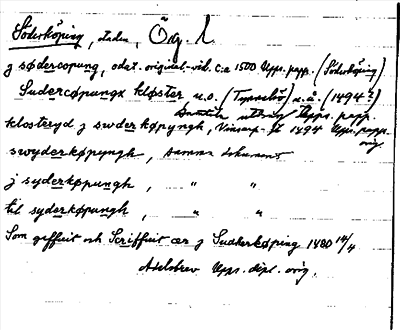 Söderköping, staden, Ög. l.
j sødercopung, odat. original-vid. c:a 1500 Upps. papp. (Söderköping)
Sudercøpungx kløster u.o. (Tynnelsö) u.å. (1494?)
Samtida utdrag Upps. papp.
klosteryd j swderkøpyngh, Vinsarp 1494 Upps. papp. orig.
swyderkøpyngh, samma dokument
j syderkøpungh, " "
til syderkøpungh, " "
Som geffuit och Scriffuit ær j Suderkøping 1480 14/4
Adelsbrev Upps. dipl. orig.